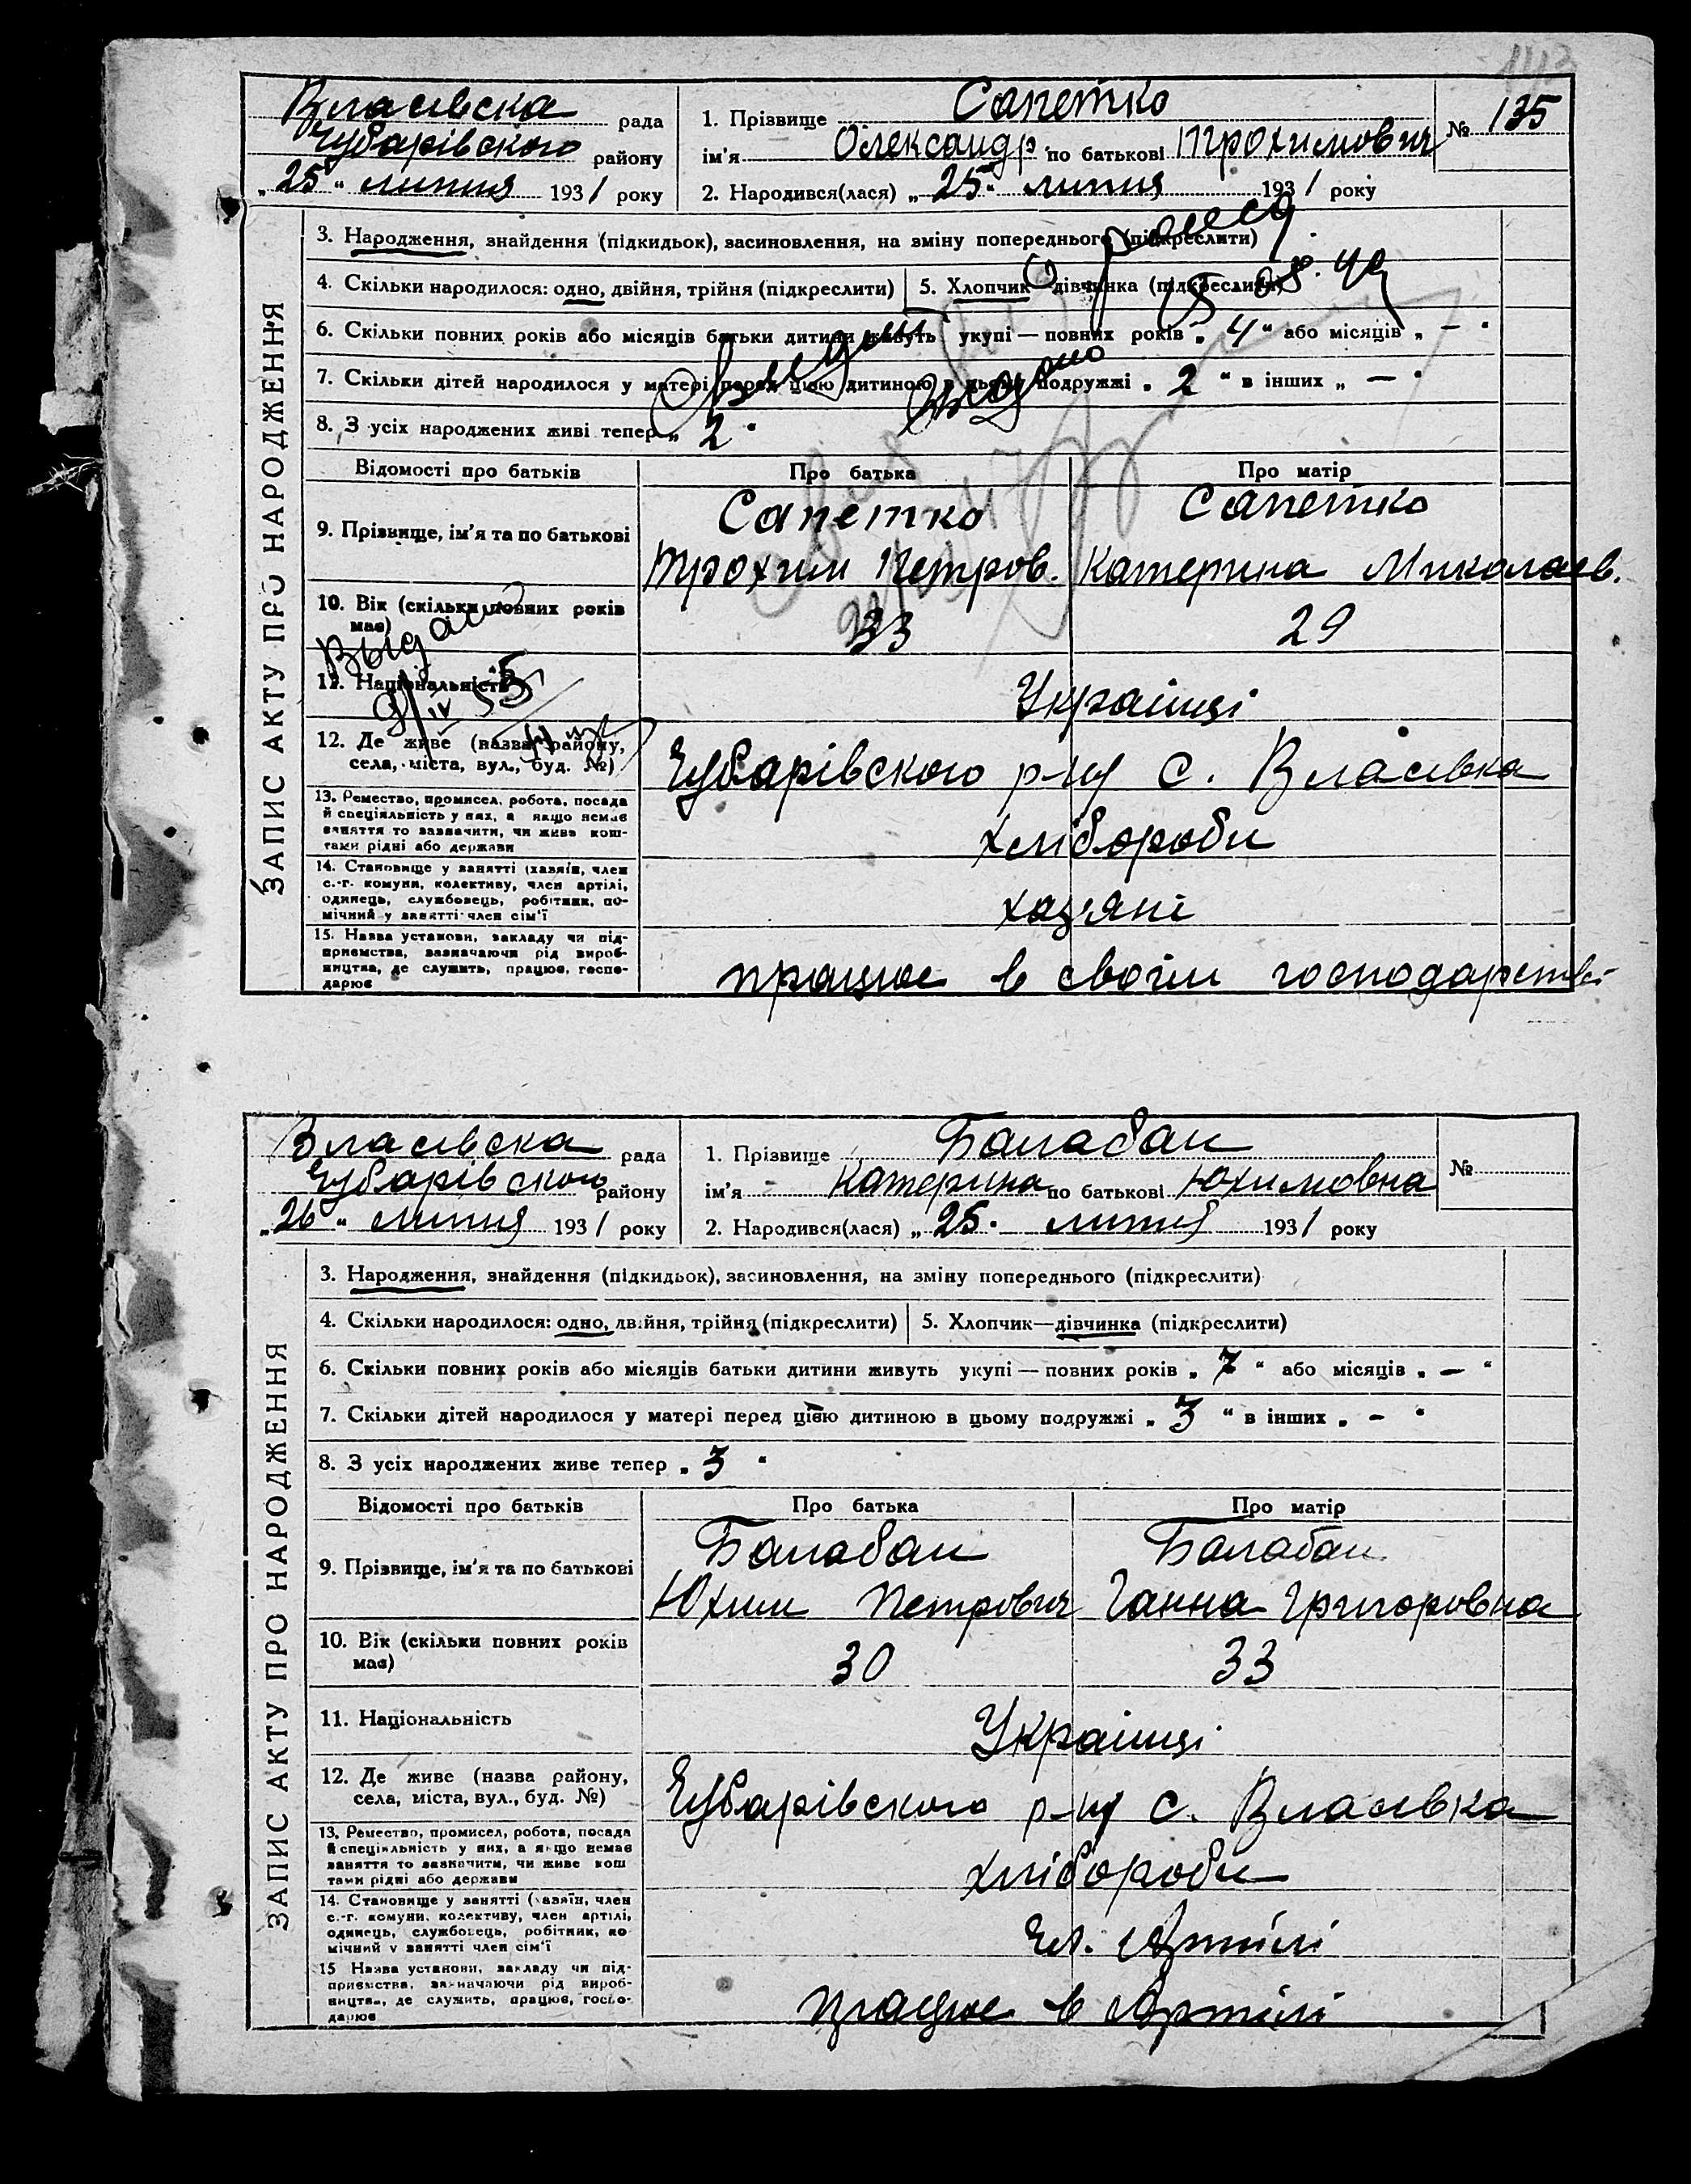 143
Власівска рада
Чубарівського району
„25“ липня 1931 року
1. Прізвище Сапетко
ім'я Олександр по батькові Трохимович
№ 135
2. Народився(лася) „25“ липня 1931 року
ЗАПИС АКТУ ПРО НАРОДЖЕННЯ
3. Народження, знайдення (підкидьок), засиновлення, на зміну попереднього (підкреслити)
4. Скільки народилося: одно, двійня, трійня (підкреслити)
5. Хлопчик—дівчинка (підкреслити)
6. Скільки повних років або місяців батьки дитини живуть укупі — повних років „4“ або місяців „—“
7. Скільки дітей народилося у матері перед цією дитиною в цьому подружжі „2“ в інших „—“
8. З усіх народжених живі тепер „2“
Відомості про батьків
Про батька
Про матір
9. Прізвище, ім'я та по батькові
Сапетко
Трохим Петров.
Сапетко
Катерина Миколаєв.
10. Вік (скільки повних років має)
33
29
Выдано
11. Національність
Українці
12. Де живе (назва району,
села, міста, вул., буд. №)
Чубарівского р-ну с. Власівка
13. Ремество, промисел, робота, посада
й спеціяльність у них, а якщо немає
заняття то зазначити, чи живе кош-
тами рідні або держави
хлібороби
14. Становище у занятті (хазяїн, член
с.-г. комуни, колективу, член артілі,
одинець, службовець, робітник, по-
мічний у занятті член сім'ї
хазяні
15. Назва установи, закладу чи під-
приємства, зазначаючи рід вироб-
ництва, де служить, працює, госпо-
дарює
працює в своїм господарстві
Власівска рада
Чубарівского району
„26“ липня 1931 року
1. Прізвище Балабан
ім'я Катерина по батькові Юхимовна
№
2. Народився(лася) „25“ липня 1931 року
ЗАПИС АКТУ ПРО НАРОДЖЕННЯ
3. Народження, знайдення (підкидьок), засиновлення, на зміну попереднього (підкреслити)
4. Скільки народилося: одно, двійня, трійня (підкреслити)
5. Хлопчик—дівчинка (підкреслити)
6. Скільки повних років або місяців батьки дитини живуть укупі — повних років „7“ або місяців „—“
7. Скільки дітей народилося у матері перед цією дитиною в цьому подружжі „3“ в інших „—“
8. З усіх народжених живе тепер „3“
Відомості про батьків
Про батька
Про матір
9. Прізвище, ім'я та по батькові
Балабан
Юхим Петрович
Балабан
Ганна Григоровна
10. Вік (скільки повних років має)
30
33
11. Національність
Українці
12. Де живе (назва району,
села, міста, вул., буд. №)
Чубарівского р-ну с. Власівка
13. Ремество, промисел, робота, посада
й спеціяльність у них, а якщо немає
заняття то зазначити, чи живе кош
тами рідні або держави
хлібороби
14. Становище у занятті (хазяїн, член
с.-г. комуни, колективу, член артілі,
одинець, службовець, робітник, по
мічний у занятті член сім'ї
Чл. Артілі
15 Назва установи, закладу чи під-
приємства, зазначаючи рід вироб-
ництва, де служить, працює, госпо-
дарює
працює в Артілі